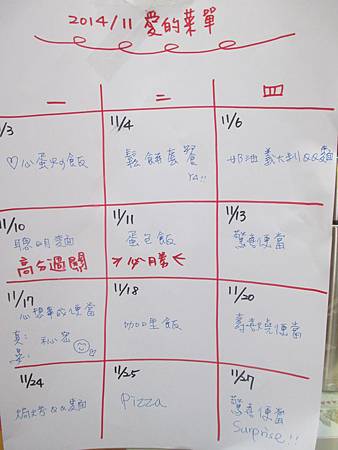 2014/11 愛的菜單
一 二 四
11/3 11/4 11/6
♡心蛋炒飯 鬆餅套餐 奶油義大利QQ麵
ya!!
11/10 11/11 11/13
聰明麵 蛋包飯 驚喜便當
高分過關
11/17 11/18 11/20
心想事成便當 咖哩飯 壽喜燒便當
真: 秘密
11/24 11/25 11/27
焗烤QQ麵 Pizza 驚喜便當
Surprise!!